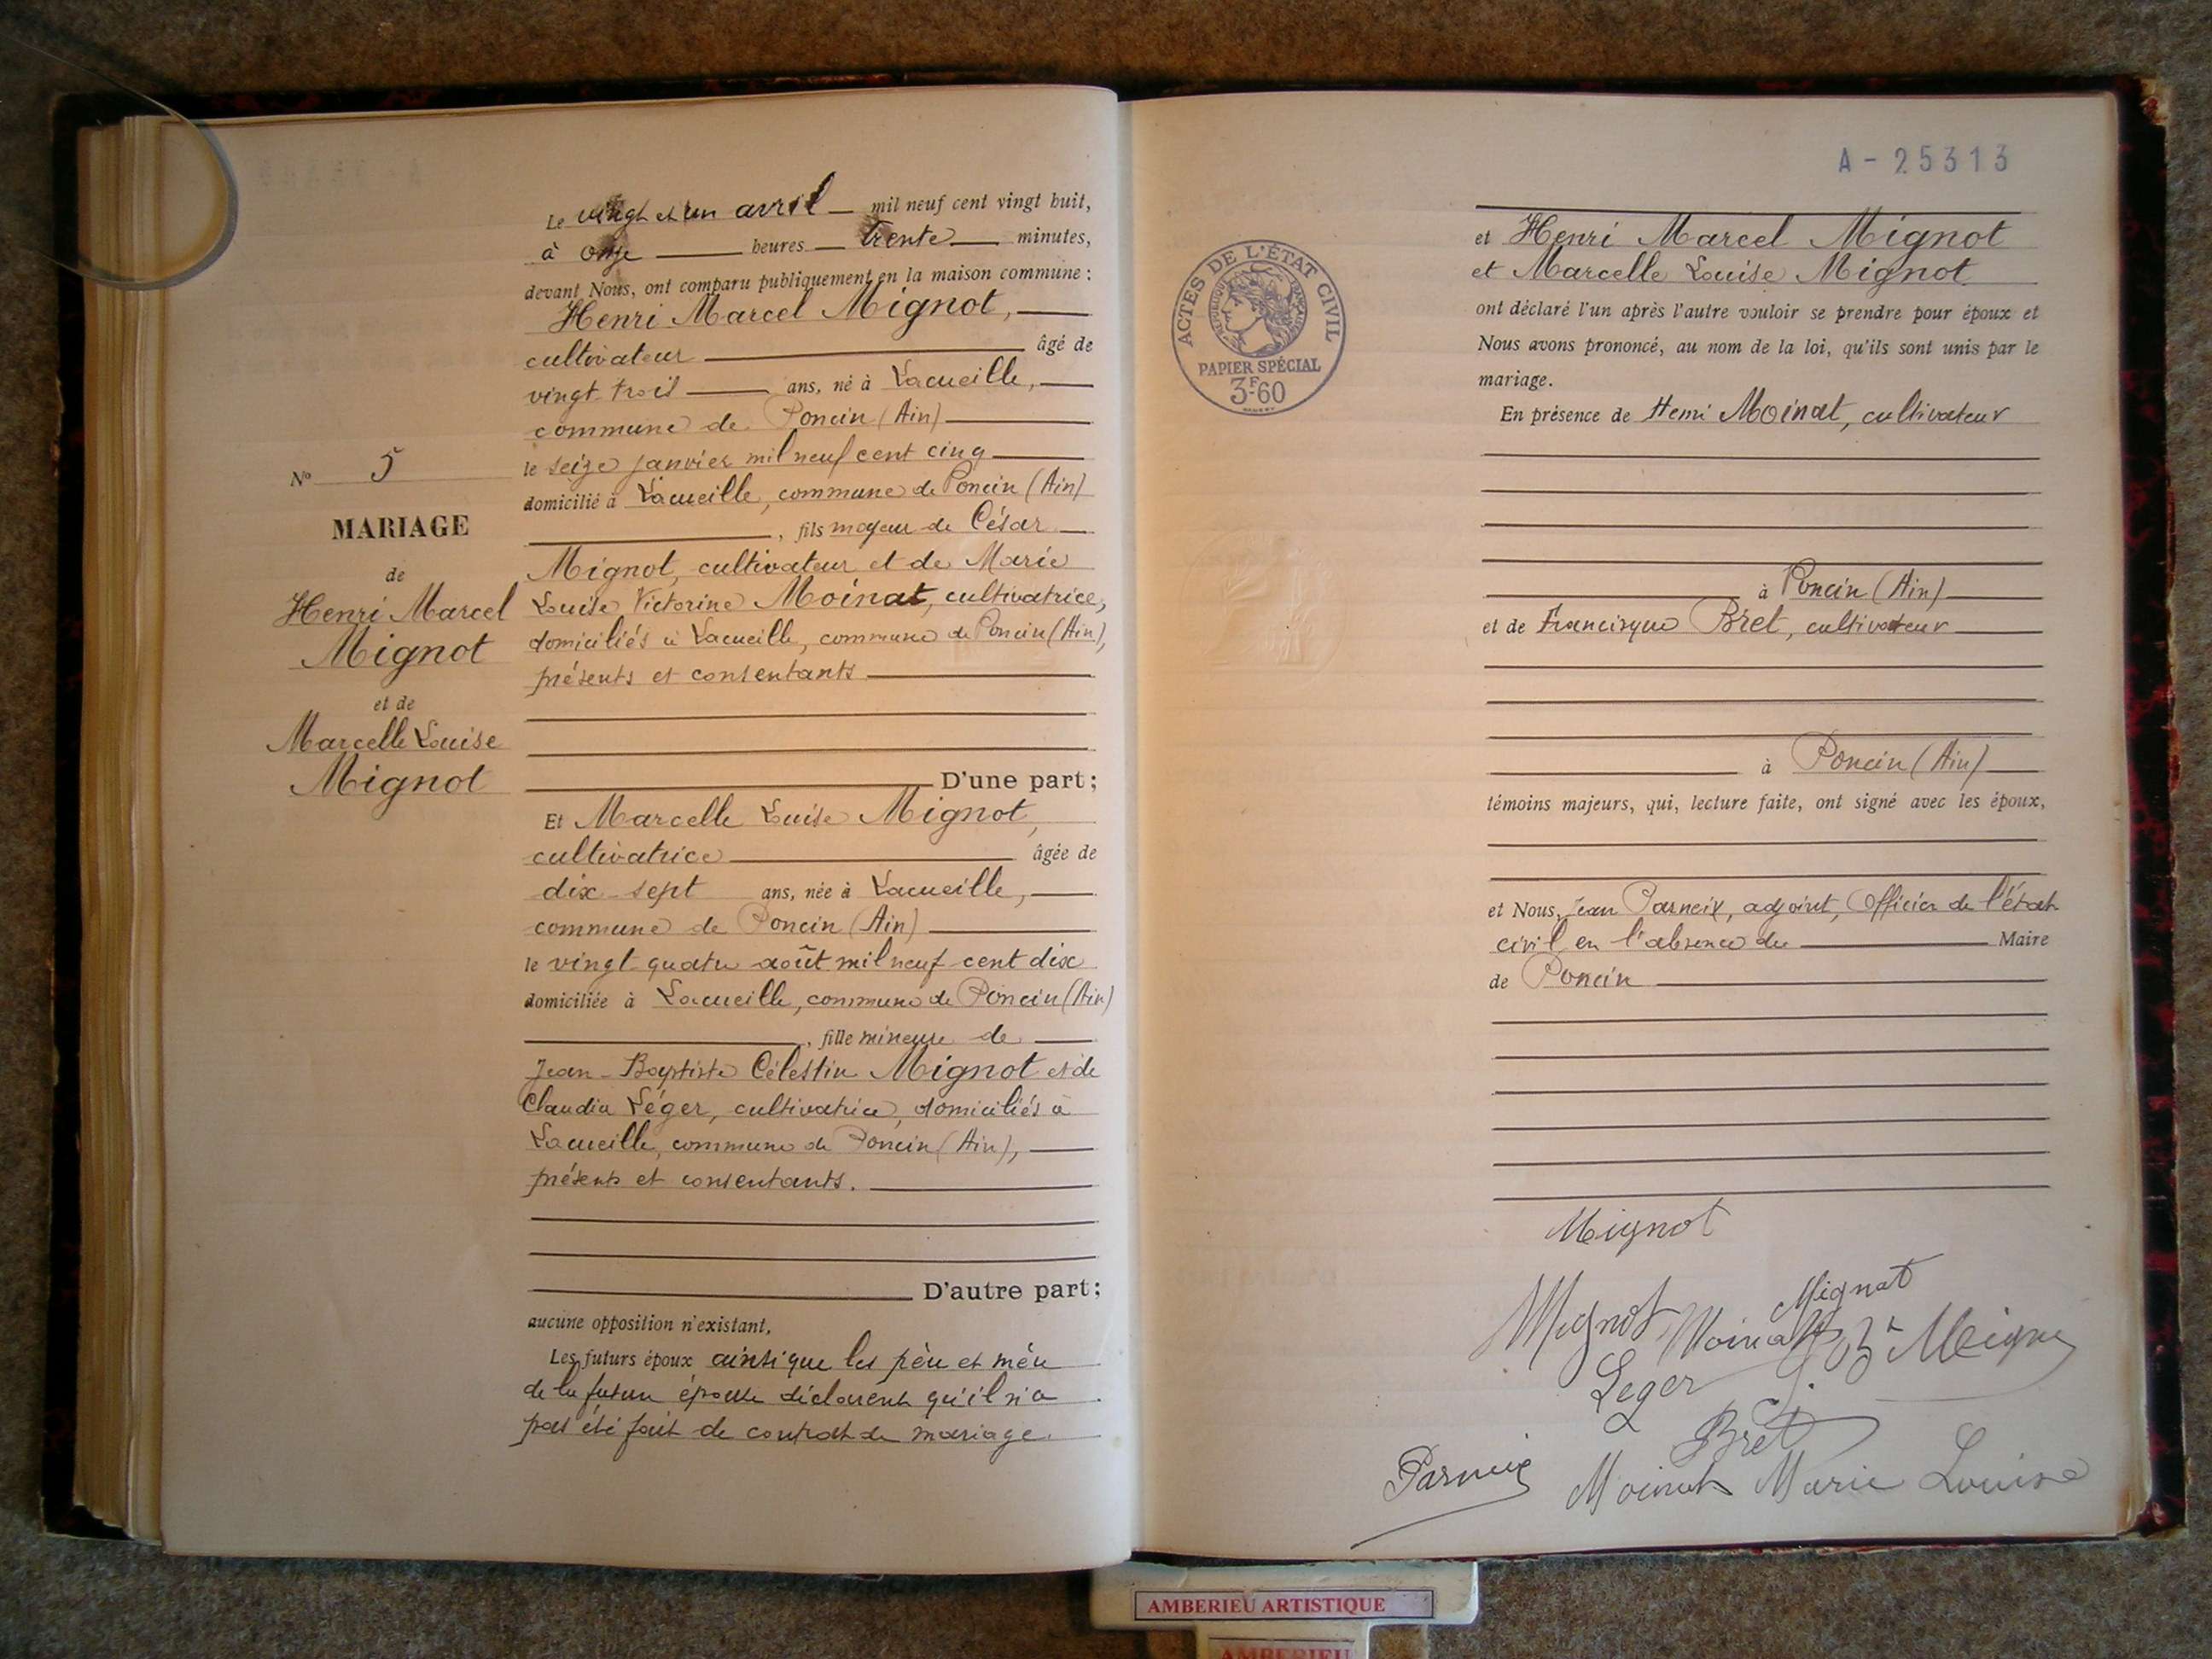 Le vingt et un avril mil neuf cent vingt huit,
à onze heures trente minutes,
devant Nous, ont comparu publiquement en la maison commune :
Henri Marcel Mignot,
cultivateur âgé de
vingt trois ans, né à Lacueille,
commune de Poncin (Ain)
le seize janvier mil neuf cent cinq
domicilié à Lacueille, commune de Poncin (Ain)
, fils majeur de César
Mignot, cultivateur et de Marie
Louise Victorine Moinat, cultivatrice,
domiciliés à Lacueille, commune de Poncin (Ain),
présents et consentants
D'une part ;
Nº 5
MARIAGE
de
Henri Marcel
Mignot
et de
Marcelle Louise
Mignot
Et Marcelle Louise Mignot,
cultivatrice âgée de
dix-sept ans, née à Lacueille,
commune de Poncin (Ain)
le vingt quatre août mil neuf cent dix
domiciliée à Lacueille, commune de Poncin (Ain)
, fille mineure de
Jean-Baptiste Célestin Mignot et de
Claudia Léger, cultivatrice, domiciliés à
Lacueille, commune de Poncin (Ain),
présents et consentants.
D'autre part ;
aucune opposition n'existant,
Les futurs époux ainsi que les père et mère
de la future épouse déclarent qu'il n'a
pas été fait de contrat de mariage.
A - 25313
ACTES DE L'ÉTAT CIVIL
RÉPUBLIQUE FRANÇAISE
PAPIER SPÉCIAL
3F60
et Henri Marcel Mignot
et Marcelle Louise Mignot
ont déclaré l'un après l'autre vouloir se prendre pour époux et
Nous avons prononcé, au nom de la loi, qu'ils sont unis par le
mariage.
En présence de Henri Moinat, cultivateur
à Poncin (Ain)
et de Francisque Bret, cultivateur
à Poncin (Ain)
témoins majeurs, qui, lecture faite, ont signé avec les époux,
et Nous, Jean Parneix, adjoint, Officier de l'état
civil en l'absence du Maire
de Poncin
Mignot
Mignot
Mignot Moinat
Leger
Bret
Parneix
Moinat Marie Louise
AMBERIEU ARTISTIQUE
AMBERIEU